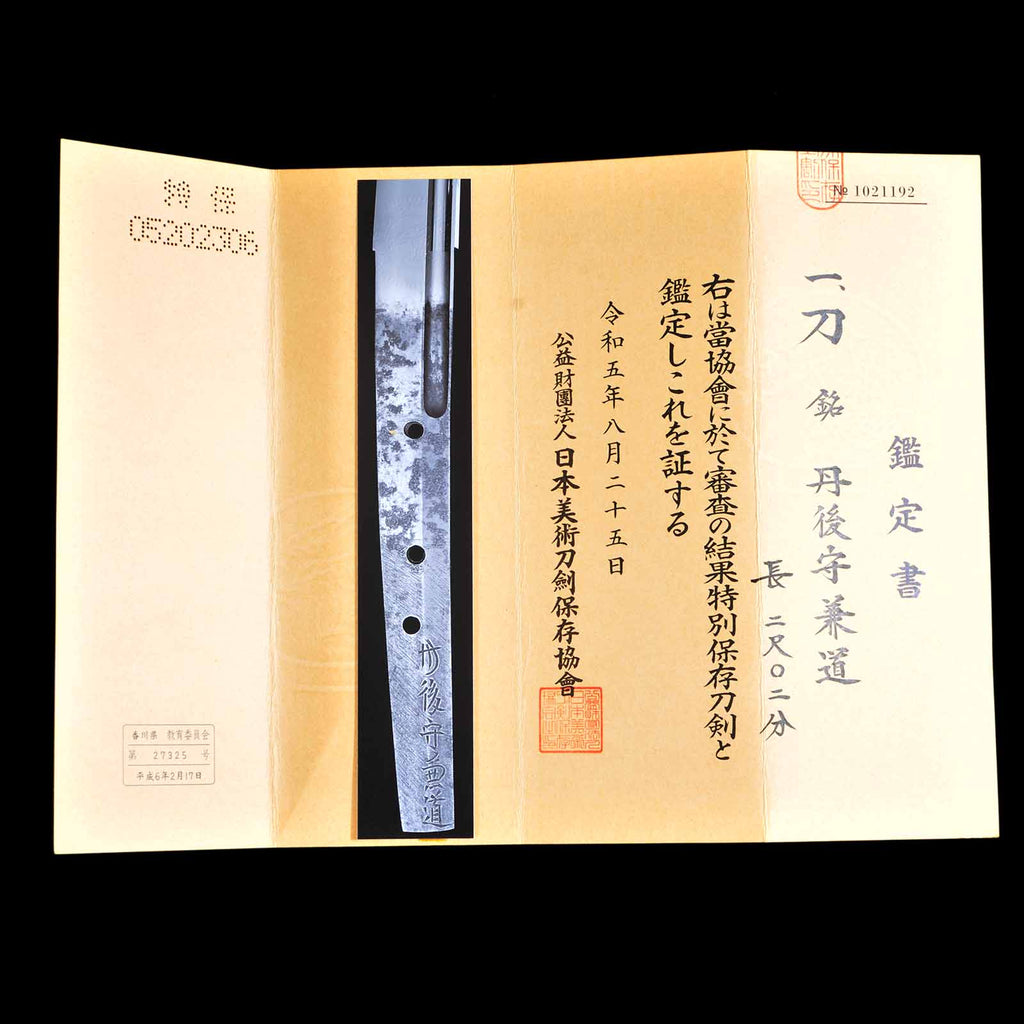 № 1021192
鑑定書
一、刀 銘 丹後守兼道
長 二尺〇二分
右は當協會に於て審査の結果特別保存刀剣と
鑑定しこれを証する
令和五年八月二十五日
公益財團法人 日本美術刀劍保存協會
丹後守兼道
特保
05202306
香川県 教育委員会
第 27325 号
平成6年2月17日